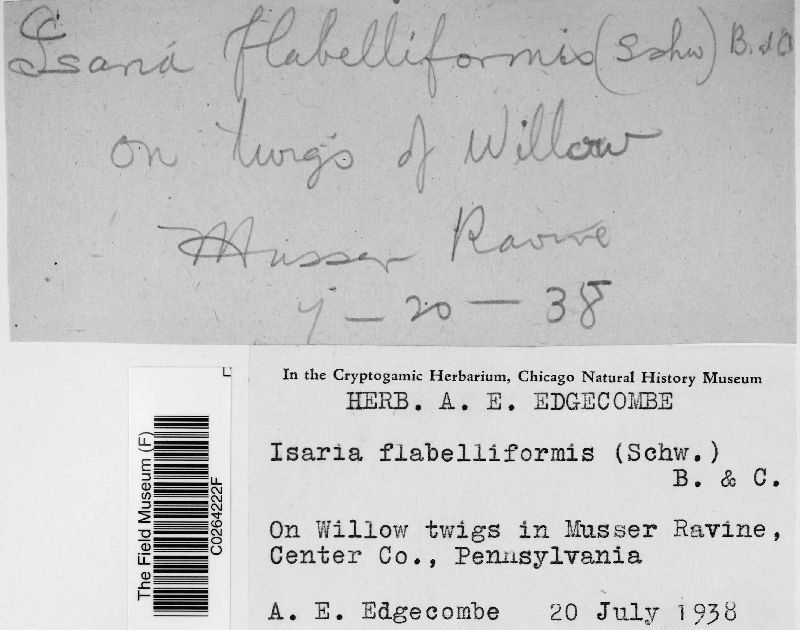 Isaria flabelliformis (Schw) B. & C
on twigs of Willow
Musser Ravine
7-20-38
In the Cryptogamic Herbarium, Chicago Natural History Museum
HERB. A. E. EDGECOMBE
Isaria flabelliformis (Schw.)
B. & C.
On Willow twigs in Musser Ravine,
Center Co., Pennsylvania
A. E. Edgecombe 20 July 1938
The Field Museum (F)
C0264222F